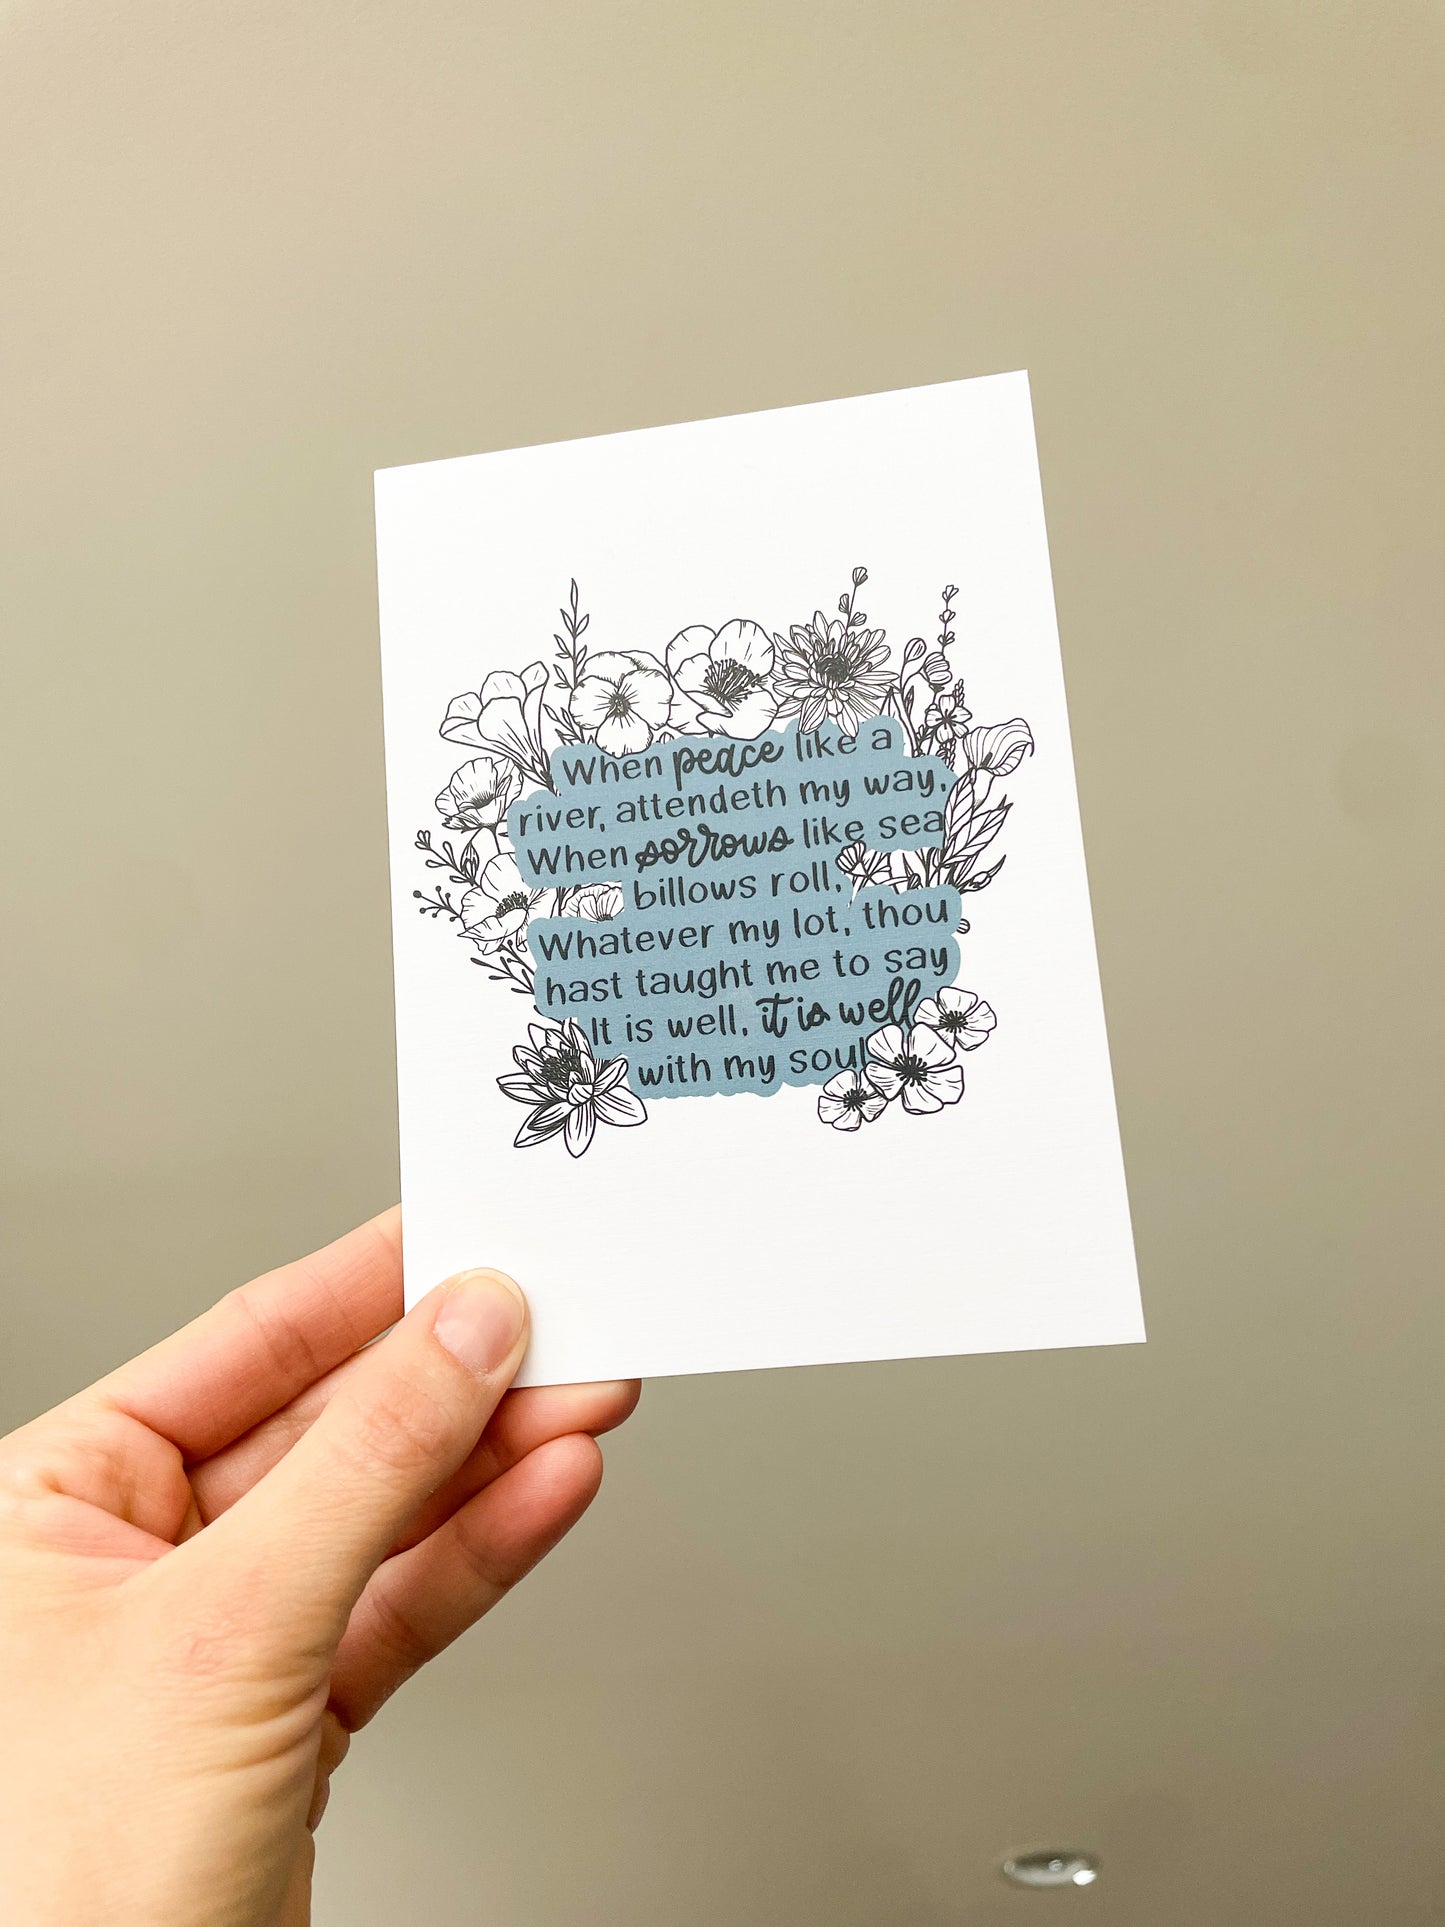 When peace like a
river, attendeth my way,
When sorrows like sea
billows roll,
Whatever my lot, thou
hast taught me to say
It is well, it is well
with my soul